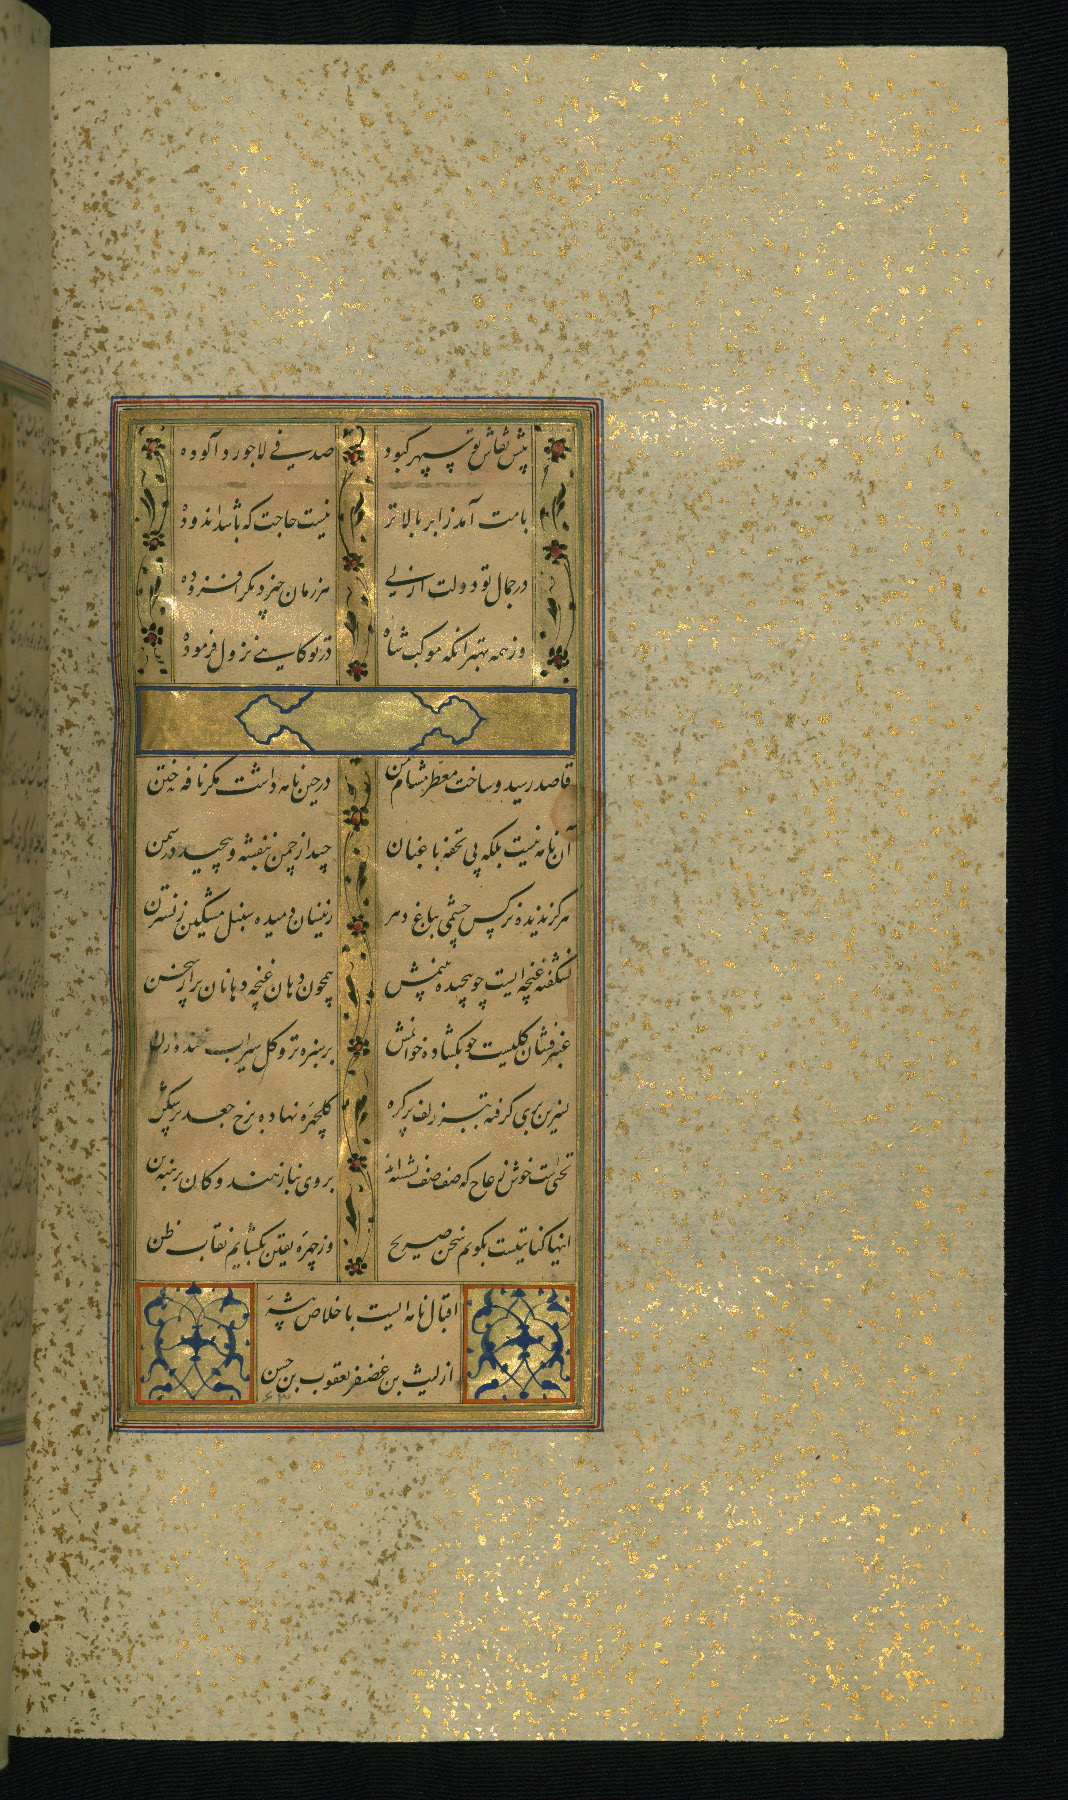 پیش نقاش تو سپهر کبود
صدفی لاجورد آلوده
بامت آمد ز ابر بالاتر
نیست حاجت که باشد اندوده
در جمال تو دولت ازلی
هر زمان چیز دیگر افزوده
وز همه بهتر انکه موکب شاه
در تو کابینی نزول فرموده
قاصد رسید و ساخت معطر مشام من
در چین نامه داشت مگر نافه ختن
آن نامه نیست بلکه پی تحفه باغبان
چید از چمن بنفشه و پیچید در سمن
هرگز ندیده نرگس چشمی بباغ دهر
زینسان دمیده سنبل مشکین ز نسترن
نشگفته غنچه ایست چو پیچیده بینمش
همچون دهان غنچه دهانان پر از سخن
عنبرفشان گلیست چو بگشاده خوانمش
بر سبزه تر و گل سیراب خنده زن
نسرین بری گرفته بتی زلف پر گره
گلچهره نهاده برخ جعد پر شکن
تختی است خوش ز عاج که صف صف نشسته اند
بروی نیازهند وکان برهنه تن
اینها کنایتیست بگویم سخن صریح
وز چهره یقین بگشایم نقاب ظن
اقبال نامه ایست باخلاص پیشه
از لیث بن غضنفر یعقوب بن حسن